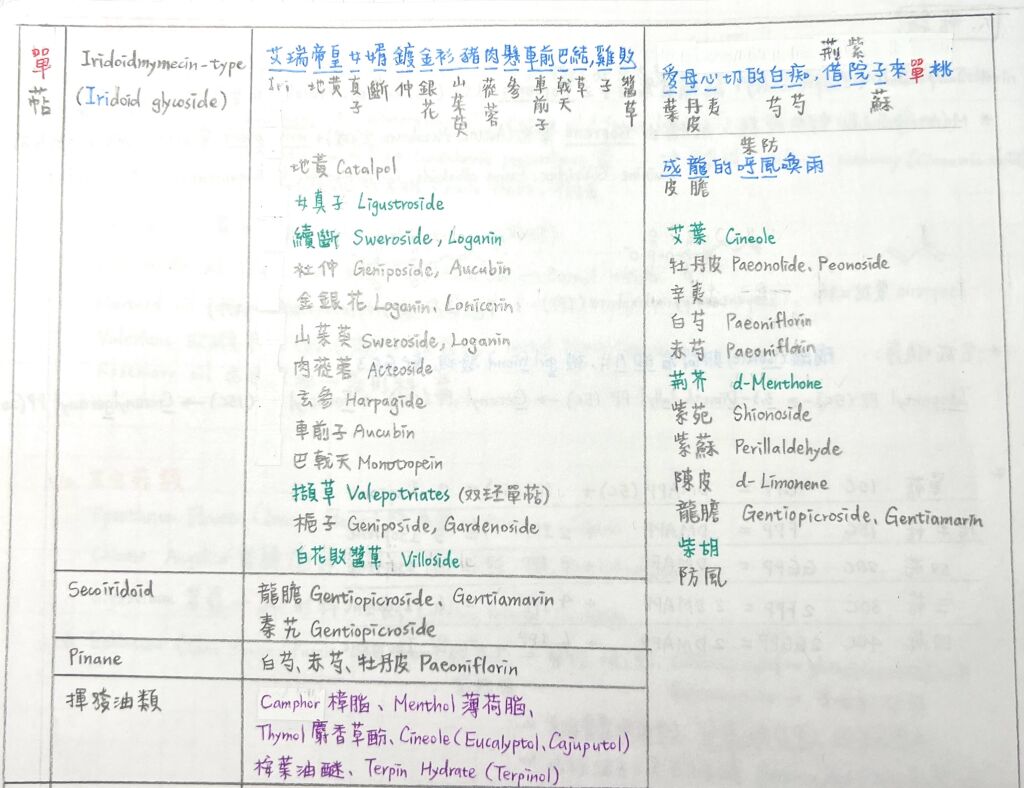 單萜
Iridoidmymecin-type
(Iridoid glycoside)
艾瑞帝皇女婿鍍金衫豬肉懸車前巴結,雞敗
Iri 地黃 女真子 斷 仲 銀花 山茱萸 蓯蓉 參 車前子 戟天 草 子 醬草
地黃 Catalpol
女真子 Ligustroside
續斷 Sweroside, Loganin
杜仲 Geniposide, Aucubin
金銀花 Loganin、Lonicerin
山茱萸 Sweroside, Loganin
肉蓯蓉 Acteoside
玄參 Harpagide
車前子 Aucubin
巴戟天 Monotropein
擷草 Valepotriates (双环單萜)
梔子 Geniposide, Gardenoside
白花敗醬草 Villoside
荊 紫
愛母心切的白痴,借院子來單挑
葉 丹皮 夷 芍 芍 蘇
柴 防
成龍的呼風喚雨
皮 膽
艾葉 Cineole
牡丹皮 Paeonolide、Peonoside
辛夷
白芍 Paeoniflorin
赤芍 Paeoniflorin
荊芥 d-Menthone
紫苑 Shionoside
紫蘇 Perillaldehyde
陳皮 d-Limonene
龍膽 Gentiopicroside、Gentiamarin
柴胡
防風
Secoiridoid
龍膽 Gentiopicroside、Gentiamarin
秦艽 Gentiopicroside
Pinane
白芍、赤芍、牡丹皮 Paeoniflorin
揮發油類
Camphor 樟脂、Menthol 薄荷脂、
Thymol 麝香草酚、Cineole (Eucalyptol、Cajuputol)
桉葉油醚、Terpin Hydrate (Terpinol)